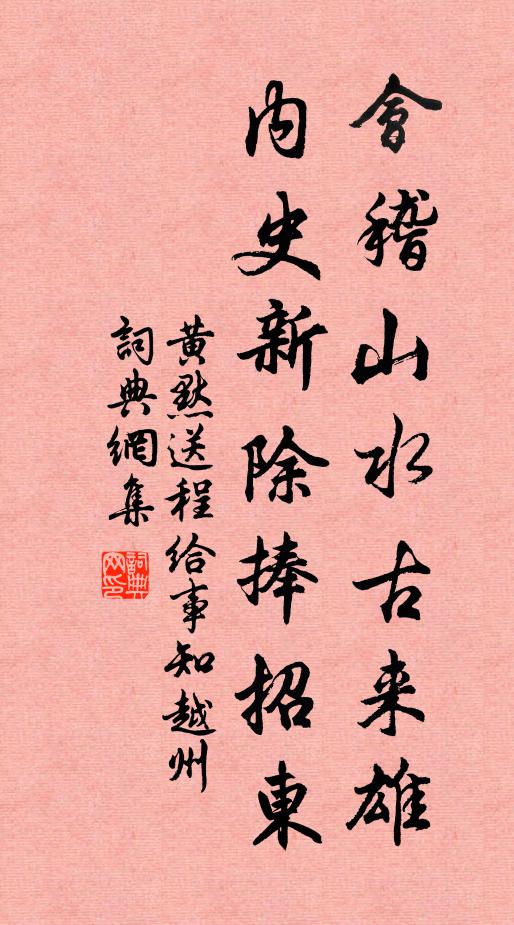 會稽山水古来雄
内史新除捧招東
黄默送程給事知越州
詞典網集
詞典网印